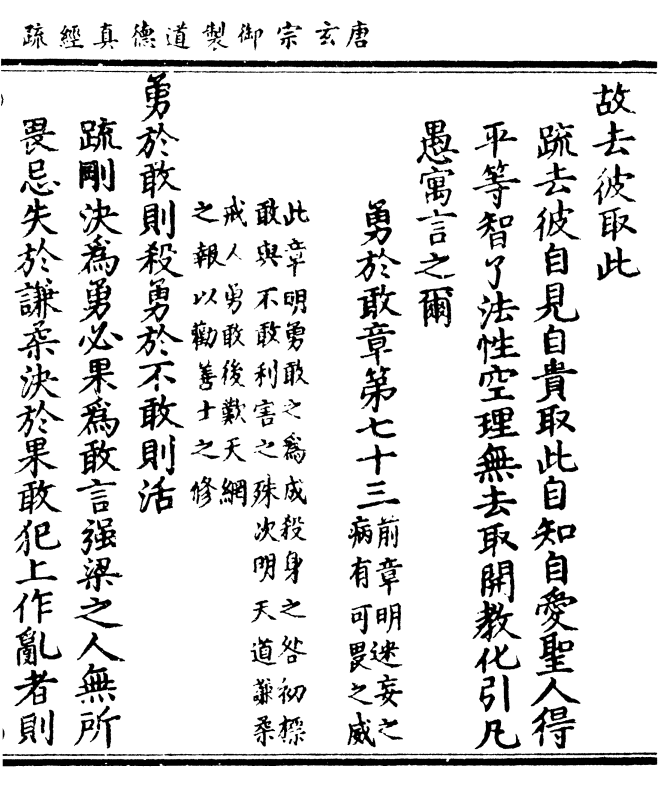 唐玄宗御製道德真經疏
故去彼取此
疏去彼自見自貴取此自知自愛聖人得
平等智了法性空理無去取開教化引凡
愚寓言之爾
勇於敢章第七十三
前章明迷妄之
病有可畏之威
此章明勇敢之為成殺身之咎初標
敢與不敢利害之殊次明天道謙柔
戒人勇敢後歎天網
之報以勸善士之修
勇於敢則殺勇於不敢則活
疏剛決為勇必果為敢言强梁之人無所
畏忌失於謙柔決於果敢犯上作亂者則